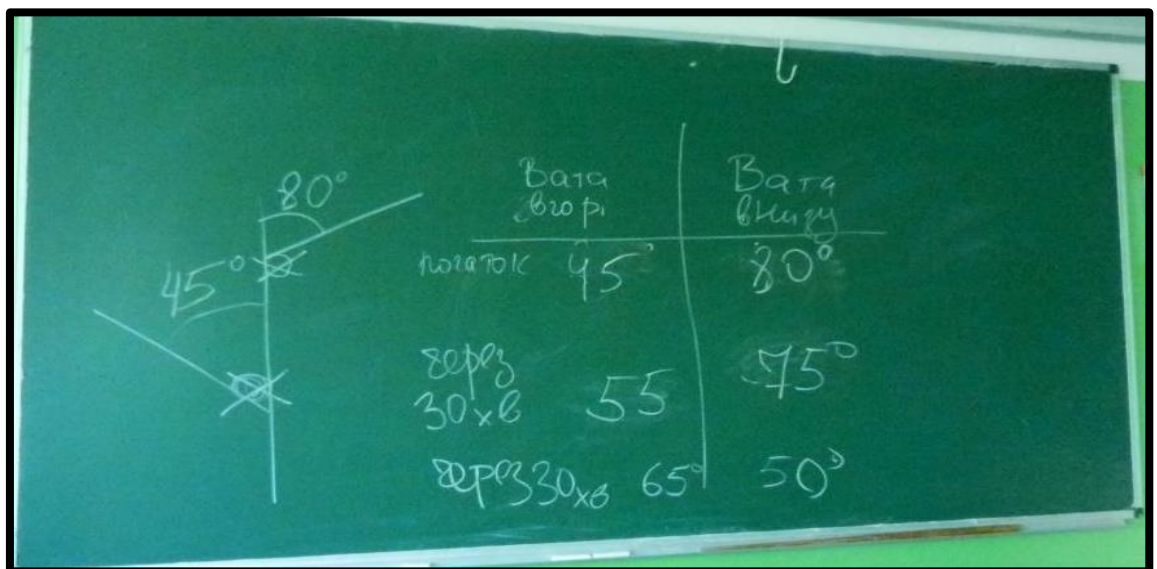 80°
45°
Вата Вата
вгорі внизу
початок 45° 80°
через
30хв 55 75°
через 30хв 65° 50°